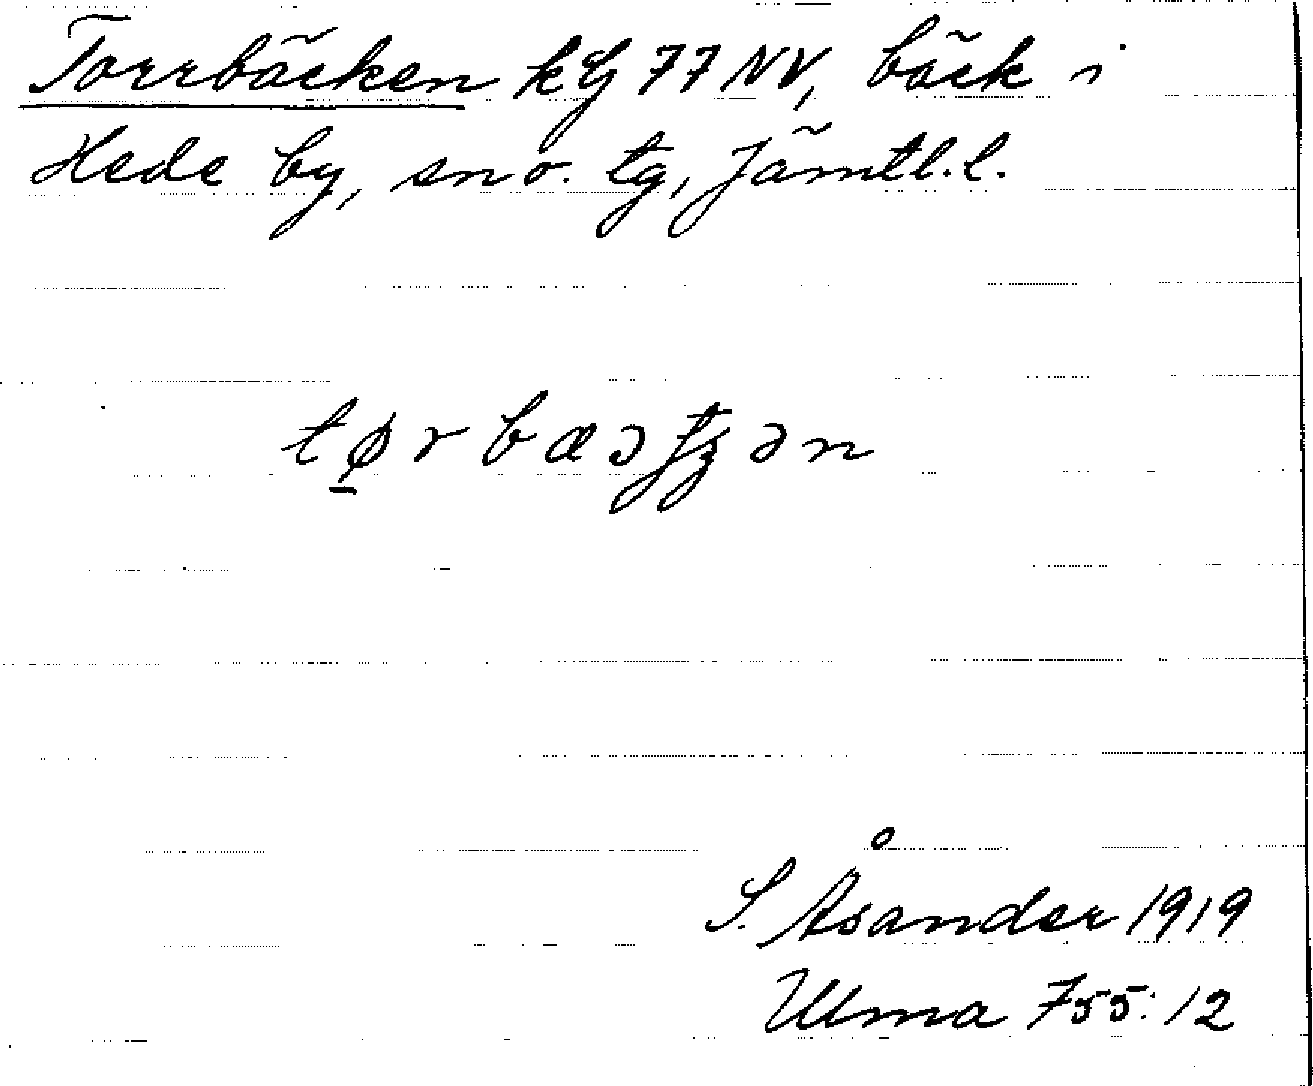 Torrbäcken kG 77 NV, bäck i
Hede by, sn o. tg, Jämtl. l.
tørbæɔʈʐən
S. Åsander 1919
Ulma 755:12